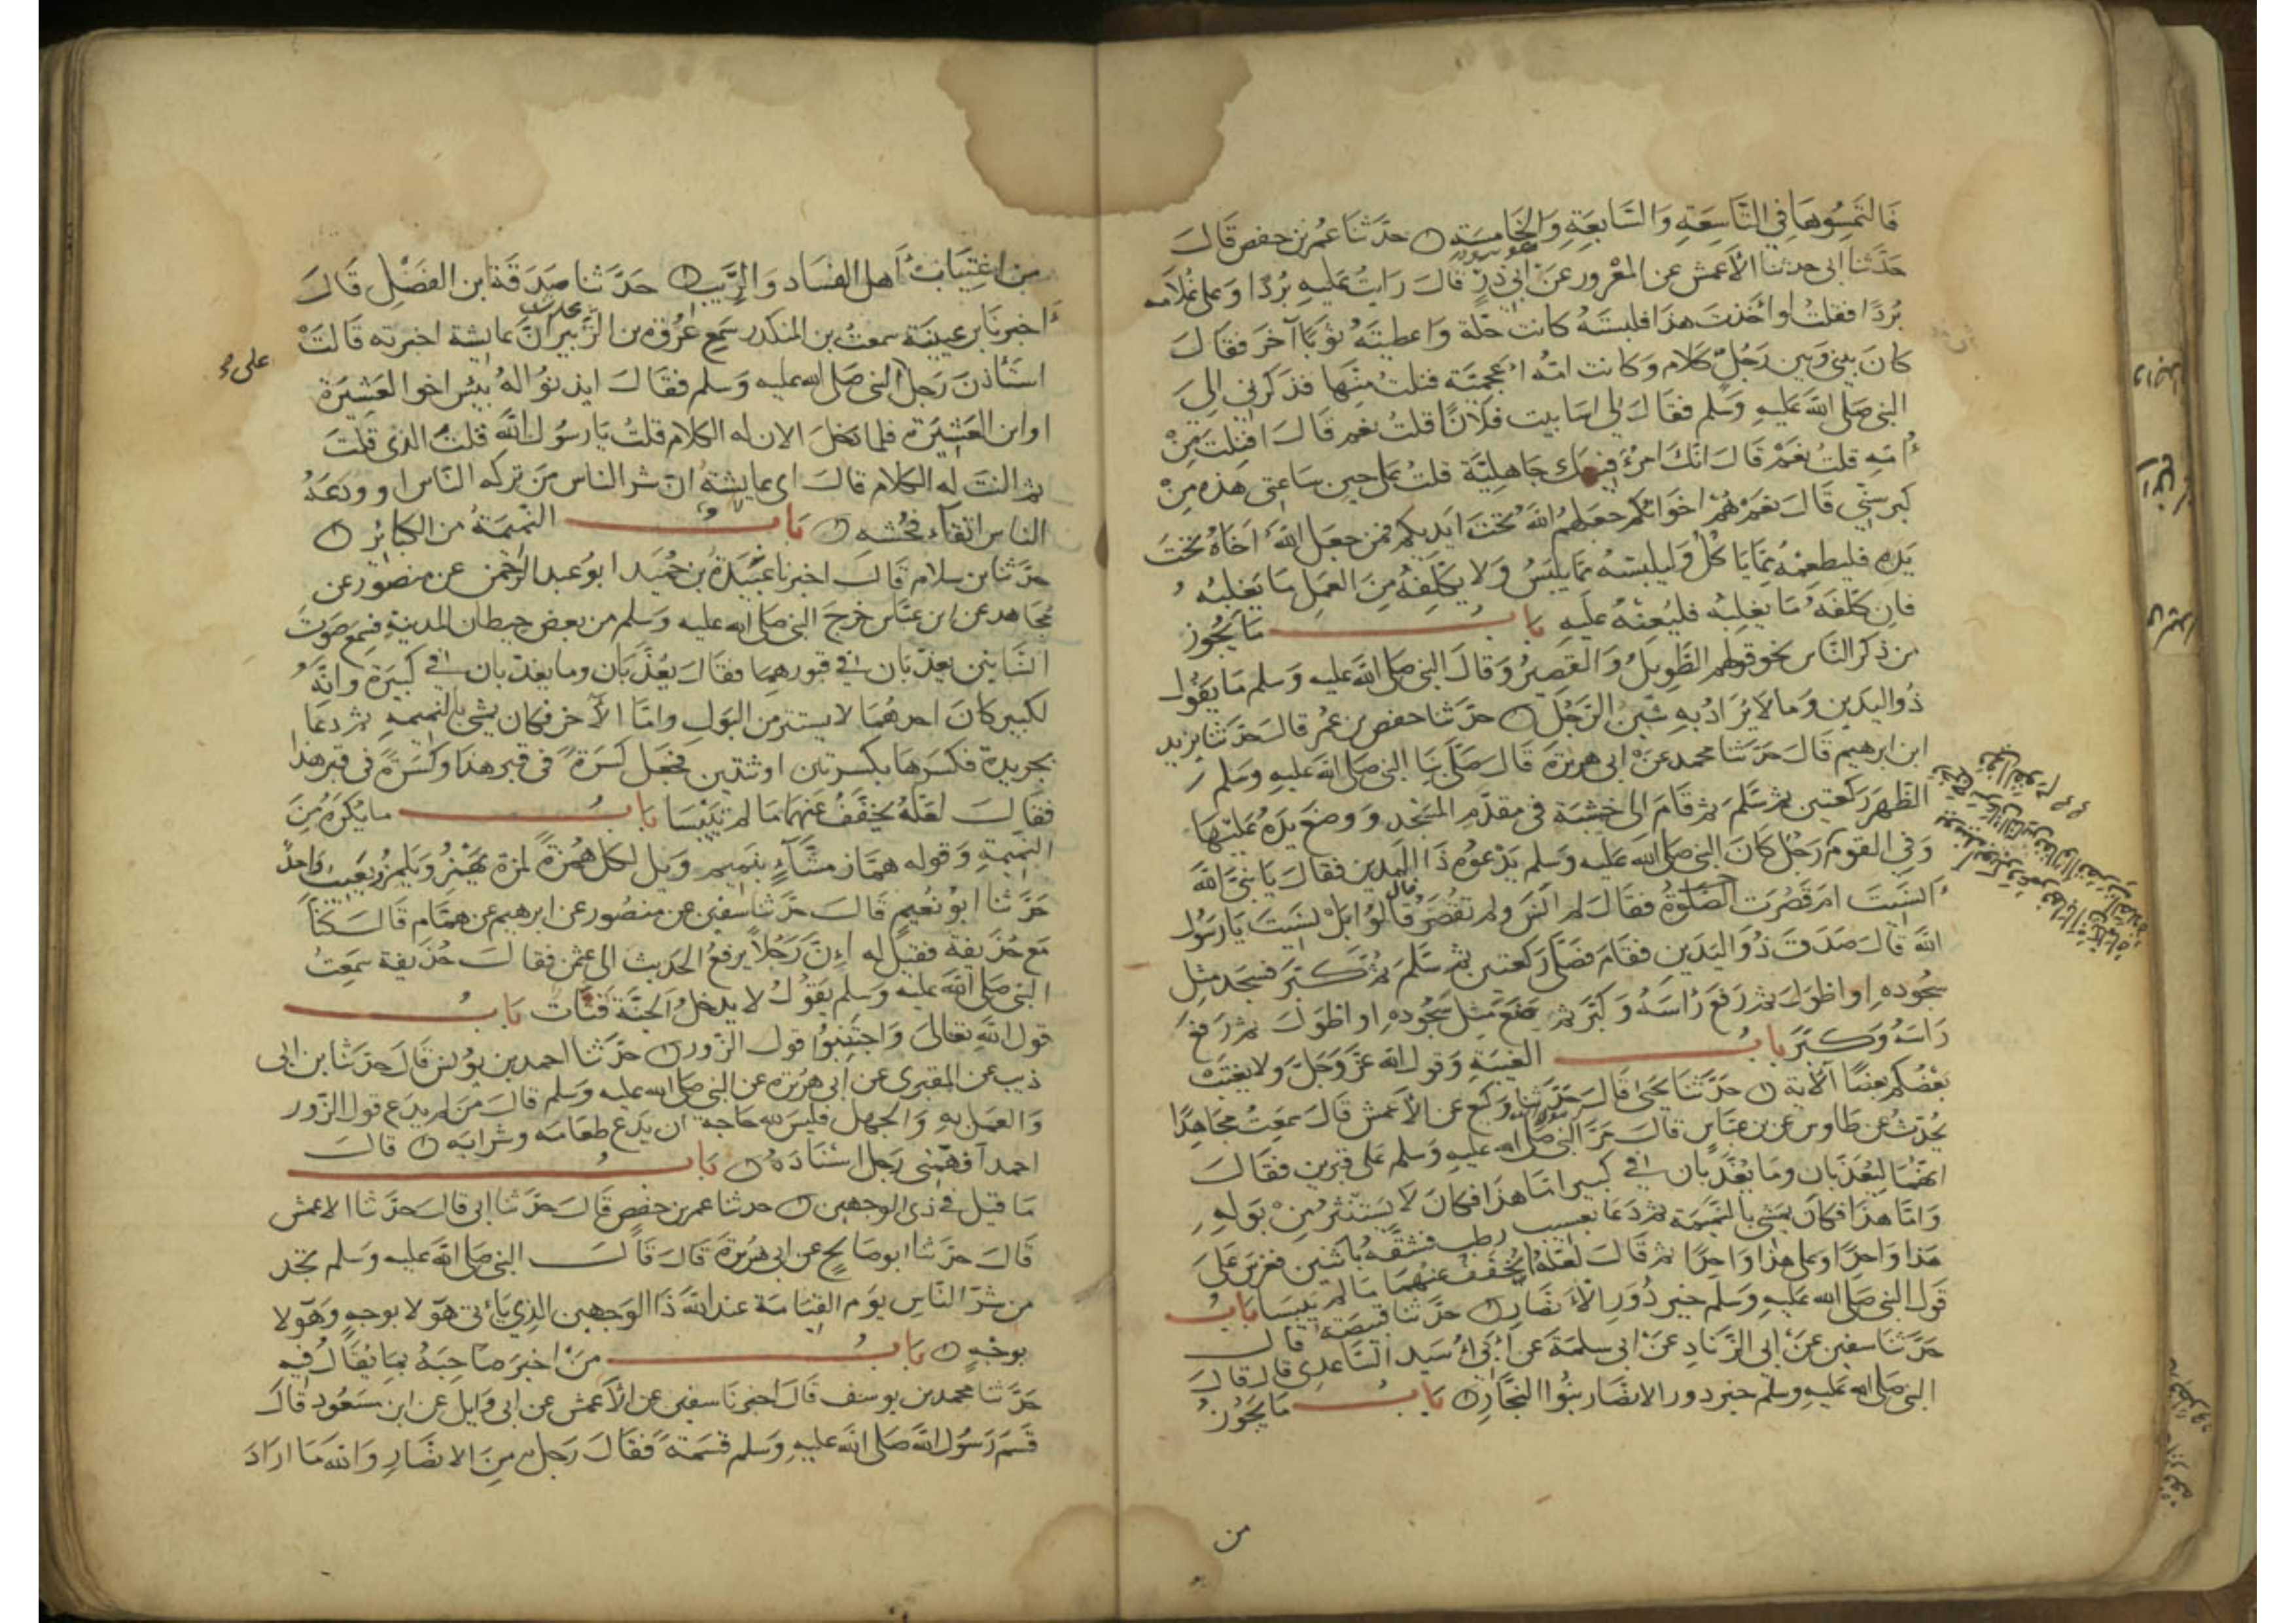 فَالتَمِسُوهَا فِي التَّاسِعَةِ وَالسَّابِعَةِ وَالخَامِسَةِ ۞ حدَّثنَا عُمر بن حفص قَالَ
حَدَّثنا ابى حدثنا الأعمش عن المعْرور عَنْ ابى ذرٍّ قالَ رَايتُ عَليهِ بُرْدًا وَعلى غُلَامه
بُرْدًا فقلتُ لو أخذتَ هذَا فلبستَهُ كانت حُلّة وَاعطيتَهُ ثَوبًا آخرَ فقالَ
كانَ بينى وَبين رَجُلٍ كلام وَكانت امّه اعْجَميّة فنلتُ مِنها فذكرنى الى
النبى صَلى اللهَ عَليهِ وَسَلم فقالَ لى اسَابيت فلانًا قلتُ نعم قالَ افنلتَ مِنْ
اُمّهِ قلتُ نَعَمْ قَالَ انّكَ امرُؤ فيكَ جَاهِليّة قلتُ عَلى حين سَاعتى هَذِه مِنْ
كبر سنّى قَالَ نعَمْ هُمْ اخوانكم جعَلهم اللهُ تحْتَ ايَديكم فمن جعَل اللهُ اخَاهُ تحْتَ
يَدِه فليطعِمْهُ ممّا ياكُلُ وَليلبسْهُ ممّا يلبَسُ وَلا يكلّفهُ مِنَ العَملِ مَا يَغلبُه
فان كلّفهُ مَا يغلبُه فليُعنهُ عَليهِ بَابُ مَا يَجُوز
من ذكر النّاس نحو قولهم الطَّويلُ وَالقَصِيرُ وَقالَ النبى صَلى اللهَ عليه وَسَلم مَا يَقُول
ذُو اليدين وَما لا يُرَادُ بهِ شَينُ الرَّجُلِ ۞ حدّثنا حفص بن عُمر قالَ حَدَّثنا يزيد
ابن ابرهيم قَالَ حَدَّثنا محمد عَنْ ابى هريرَة قَالَ صَلّى بِنَا النبى صَلى اللهَ عَليهِ وَسَلم
الظّهرَ ركعتين ثم سَلّمَ ثم قامَ الى خَشَبَة فى مقدّمِ المَسْجد وَوضعَ يدَهُ عَليْهَا
وَفى القومِ رَجُل كانَ النبى صَلى اللهَ عَليه وَسَلم يَدْعُوه ذَا اليَدين فقالَ يَا نبىَّ اللهَ
انسَيتَ ام قَصُرَت الصَّلوة فقالَ لم انسَ ولم تقصر قَالُوا بَلْ نسَيتَ يَا رَسُولَ
اللهَ قالَ صَدَقَ ذُو اليَدَين فقامَ فصَلّى ركعتين ثم سَلّمَ ثم كبّرَ فسَجد مثل
سُجُودِه او اطوَلَ ثم رَفعَ رَاسَهُ وَكبّرَ ثم وَضَعَ مثل سُجُودِه او اطوَلَ ثم رَفعَ
رَاسَهُ وَكبّرَ بَابُ الغيبَةِ وَقول الله عَزَّ وَجَلَّ وَلا يغتَبْ
بَعْضُكم بعضًا الآية ۞ حَدَّثنَا يَحيَى قَالَ حَدَّثنا وَكيع عن الأعمش قَالَ سَمعتُ مجَاهدًا
يُحَدّثُ عَن طَاوس عن بن عبَّاسٍ قالَ مَرّ النبى صلى الله عليهِ وَسَلم على قبرين فقالَ
انهُمَا ليُعَذّبَان وَمَا يُعَذّبَان فى كبير امّا هذَا فكانَ لا يَستتر مِنْ بَولهِ
وَامّا هذَا فكانَ يمشى بالنّميمَة ثم دَعَا بعَسيبٍ رطبٍ فشقّهُ باثنين فغرسَ عَلَى
هَذا وَاحدًا وَعلى هذا وَاحدًا ثم قَالَ لعَلّهُ يُخفّفُ عنهُمَا مَا لم يَيبَسَا بَابُ
قول النبى صَلى الله عَليهِ وَسَلم خير دُورِ الأنصَارِ ۞ حدّثنا قبيصَة قالَ
حَدَّثنا سفين عَنْ ابى الزّنَادِ عَنْ ابى سلمَة عَن ابى اُسَيد السَّاعدى قالَ قالَ
النبى صَلى الله عَليهِ وسَلم خير دور الانصَار بنُوا النجَّارِ ۞ بَابُ مَا يَجُوزُ
من
من اغتيَابِ اَهل الفسَاد وَالرِّيَبِ ۞ حَدَّثنا صَدَقة ابن الفَضْل قَالَ
اخبرنَا بن عيينَة سمعتُ بن المنكدر سَمعَ عُروَة بن الزّبير انّ عايشة اخبرته قَالتْ
استَاذنَ رَجل على النبى صَلى الله عليه وَسَلم فقالَ ايذنوُا لهُ بيْسَ اخو العَشيرَة
او ابن العَشيرَة فلمّا دَخلَ الان له الكلام قلتُ يَا رسُولَ اللهَ قلتَ الذى قلتَ
ثم النتَ له الكلام قالَ اى عَايشَة انّ شرّ الناس مَن تركه النّاس او وَدَعَهُ
الناس اتّقآء فحُشه ۞ بَابُ النَّمِيمَةُ من الكبائر ۞
حدّثنا بن سلام قَالَ اخبرنا عَبيدة بن حُميد ابو عبد الرّحمن عن منصُور عن
مُجاهد عن ابن عبّاس خرجَ النبى صَلى الله عليه وَسَلم من بعض حيطان المدينةِ فسَمعَ صَوت
انسَانين يعذّبَان فى قبورهما فقالَ يُعذَّبَان وما يعذّبَان فى كبيرَة وَانّهُ
لكبير كانَ احدهُمَا لا يستتر من البَولِ وَامّا الآخر فكان يمشى بالنميمةِ ثم دعَا
بجريدة فكسَرهَا بكسرتين او ثنتين فجَعل كسرةً فى قبر هذَا وَكسْرَة فى قبر هذا
فقَالَ لعَلّهُ يُخفّفُ عَنهُمَا مَا لم يَيْبَسَا بَابُ ما يُكرَهُ مِنَ
النّميمةِ وَقوله همّاز مشّآءٍ بنميم ويل لكل همزةٍ لمزة يَهْمزُ وَيَلمزُ يعيبُ واحدٌ
حَدّثنا ابُو نُعَيم قَالَ حَدّثنا سفين عن منصُور عن ابرهيم عن همّام قَالَ كنّا
مَع حُذَيفة فقيل له إنَّ رَجُلاً يرفعُ الحَديث الى عثمن فقالَ حُذيفة سَمعتُ
النبى صَلى اللهَ عليه وَسَلم يَقُولُ لا يدخلُ الجنَّة قتَّات بَابُ
قول اللهِ تعَالى وَاجتَنِبُوا قول الزّور ۞ حدّثنا احمد بن يونس قالَ حدّثنا بن ابى
ذيب عن المقبرى عن ابى هُريرة عن النبى صَلى الله عليه وَسَلم قالَ مَن لم يَدَع قول الزّور
وَالعَمل بهِ وَالجهل فليسَ لله حَاجة ان يدَع طعَامَه وشرَابَه ۞ قالَ
احمد افهَمَنى رَجل اسْنَادَهُ ۞ بَابُ
مَا قيل فى ذى الوجهين ۞ حدثنا عمر بن حفص قَالَ حَدّثنا ابى قالَ حدّثنا الاعمش
قَالَ حدّثنا ابو صَالح عن ابى هُريرَة قَالَ قَالَ النبى صَلى الله عَليه وَسَلم تجد
من شرّ النّاسِ يوَم القيَامَة عند اللهَ ذَا الوَجهين الذى يَاتى هَؤلا بوجهٍ وَهَؤلا
بوجْهٍ ۞ بَابُ مَنْ اخبرَ صَاحِبَهُ بمَا يُقَالُ فيهِ
حَدَّثنا محمد بن يوسف قَالَ اخبرنَا سفين عن الأعمش عن ابى وَايل عن ابن مسَعُود قالَ
قَسَمَ رَسُول اللهَ صَلى اللهَ عليهِ وَسَلم قسمَةً فقالَ رَجل مِنَ الانصَارِ وَاللهَ مَا ارَادَ